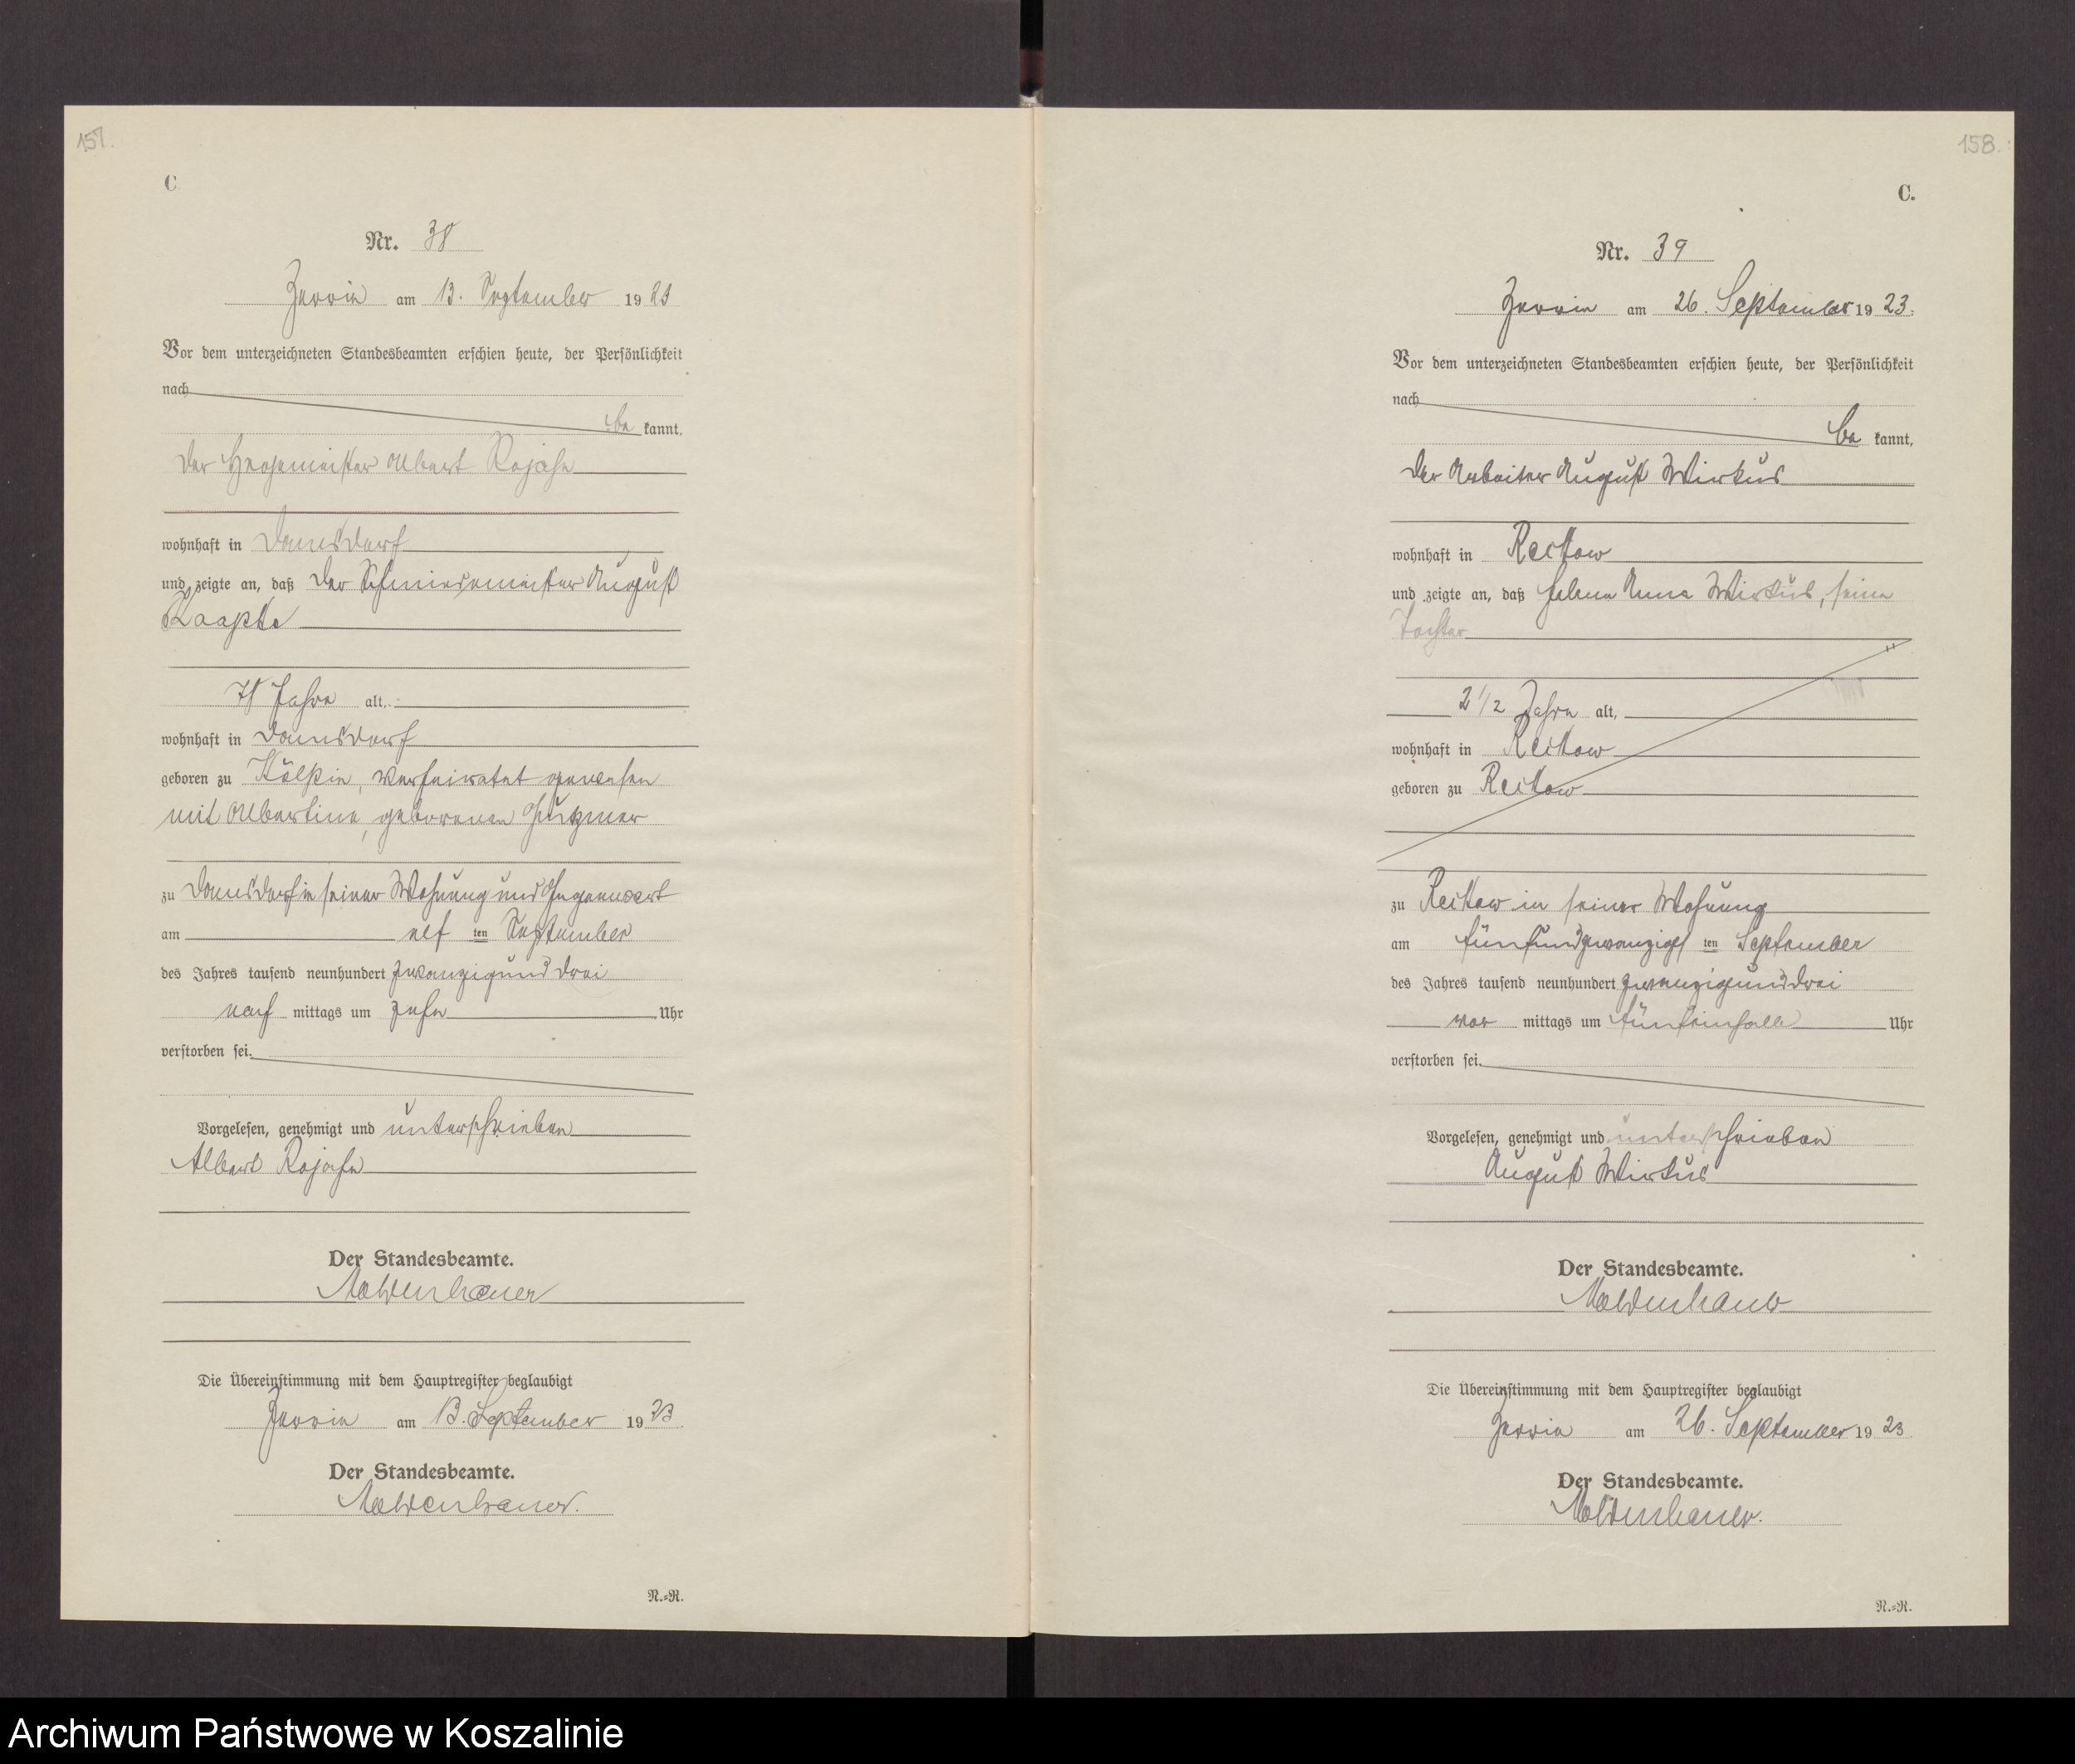 157.
C
Nr. 38
Zerrin am 13. September 1923
Vor dem unterzeichneten Standesbeamten erschien heute, der Persönlichkeit
nach
be kannt,
der Hegemeister Albert Rojahn
wohnhaft in Damsdorf
und zeigte an, daß der Schmiedemeister August
Raapke
Jahre alt,
wohnhaft in Damsdorf
geboren zu Kölpin, verheiratet gewesen
mit Albertine, geborenen Gutzmer
zu Damsdorf in seiner Wohnung und Gegenwart
am elf ten September
des Jahres tausend neunhundert zwanzigunddrei
nach mittags um zehn Uhr
verstorben sei.
Vorgelesen, genehmigt und unterschrieben
Albert Rojahn
Der Standesbeamte.
Moldenhauer
Die Übereinstimmung mit dem Hauptregister beglaubigt
Zerrin am 13. September 1923
Der Standesbeamte.
Moldenhauer.
N.=R.
158.
C.
Nr. 39
Zerrin am 26. September 1923.
Vor dem unterzeichneten Standesbeamten erschien heute, der Persönlichkeit
nach
be kannt,
der Arbeiter August Wirkus
wohnhaft in Reckow
und zeigte an, daß Helene Anna Wirkus, seine
Tochter
2 1/2 Jahre alt,
wohnhaft in Reckow
geboren zu Reckow
zu Reckow in seiner Wohnung
am fünfundzwanzigs ten September
des Jahres tausend neunhundert zwanzigunddrei
vor mittags um fünfeinhalb Uhr
verstorben sei.
Vorgelesen, genehmigt und unterschrieben
August Wirkus
Der Standesbeamte.
Moldenhauer
Die Übereinstimmung mit dem Hauptregister beglaubigt
Zerrin am 26. September 1923
Der Standesbeamte.
Moldenhauer.
N.=R.
Archiwum Państwowe w Koszalinie